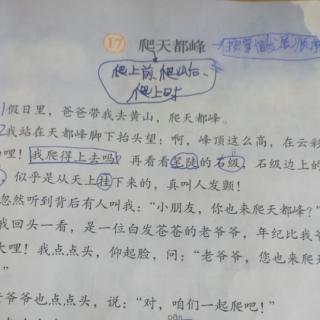 17 爬天都峰
按事情发展顺序
爬上前、爬山后、
爬上时
1假日里，爸爸带我去黄山，爬天都峰。
2我站在天都峰脚下抬头望：啊，峰顶这么高，在云彩
哩！我爬得上去吗？再看看笔陡的石级，石级边上的
，似乎是从天上挂下来的，真叫人发颤！
忽然听到背后有人叫我：“小朋友，你也来爬天都峰？”
我回头一看，是一位白发苍苍的老爷爷，年纪比我爷
大哩！我点点头，仰起脸，问：“老爷爷，您也来爬天
”
老爷爷也点点头，说：“对，咱们一起爬吧！”